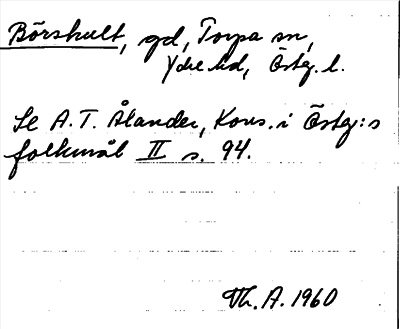 Börshult, gd, Torpa sn,
Ydre hd, Östg. l.
Se A.T. Ålander, Kons. i Östg:s
folkmål II s. 94.
Th. A. 1960